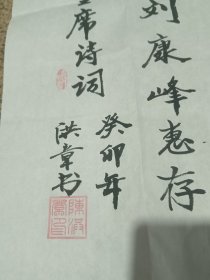 刘康峰惠存
席诗词
癸卯年
洪章书